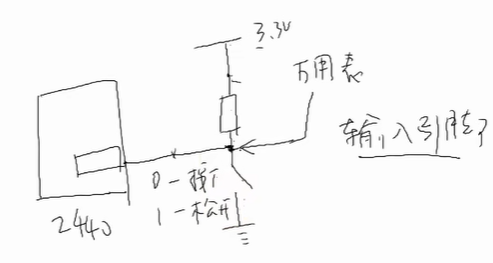 3.3V
万用表
输入引脚
0-按下
1-松开
2440